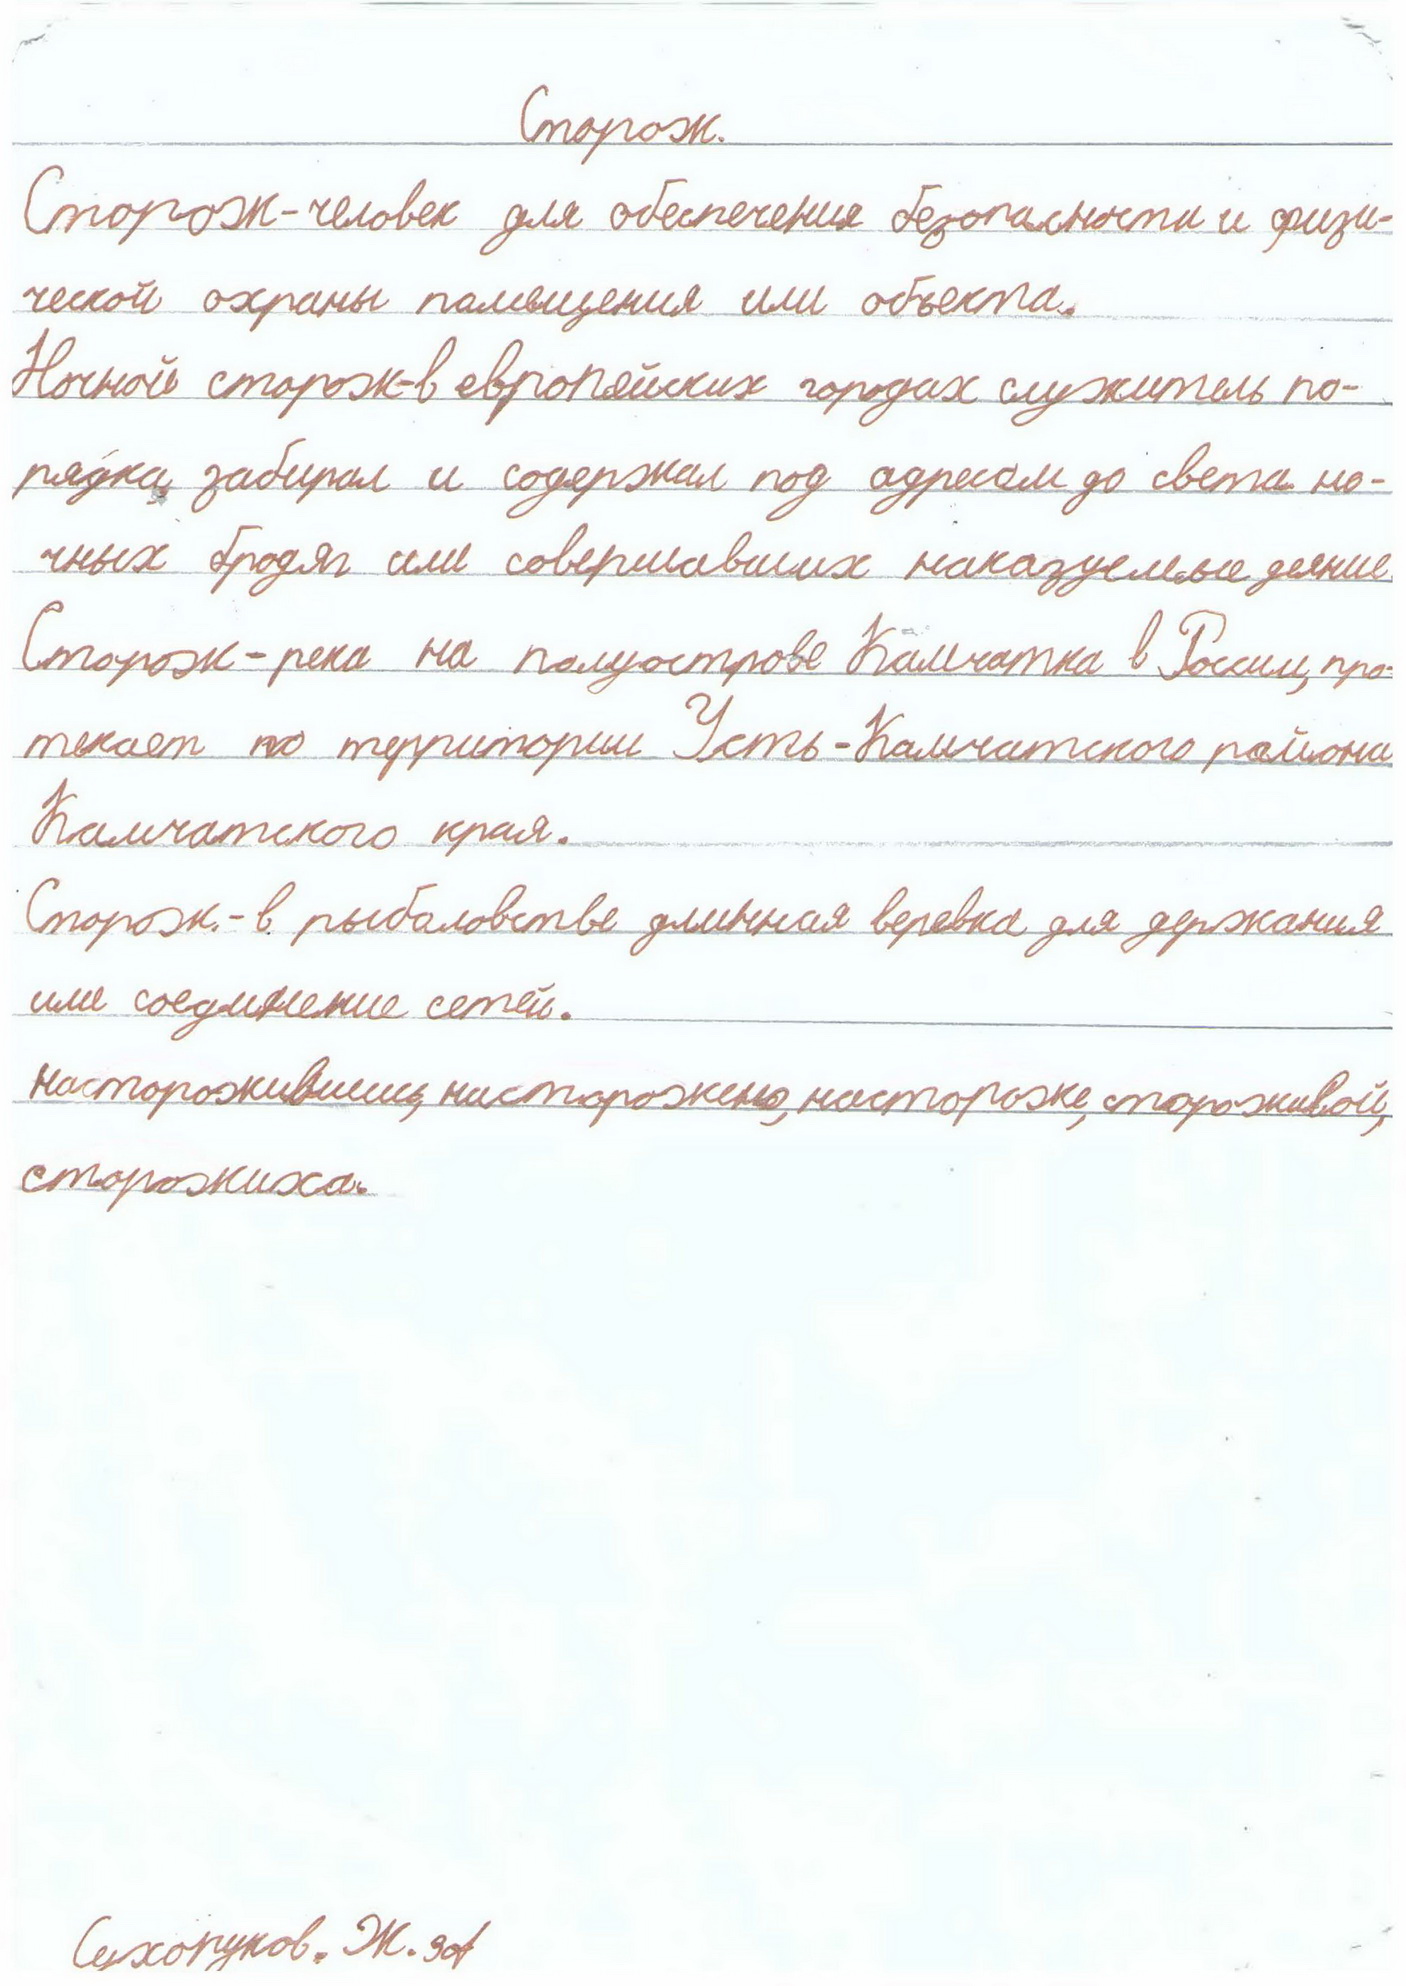 Сторож.
Сторож-человек для обеспечения безопасности и физи-
ческой охраны помещения или объекта.
Ночной сторож-в европейских городах служитель по-
рядка, забирал и содержал под адресом до света но-
чных бродяг или совершавших наказуемые деяние.
Сторож-река на полуострове Камчатка в России, про-
текает по территории Усть-Камчатского района
Камчатского края.
Сторож.-в рыбаловстве длинная веревка для держания
или соединение сетей.
насторожившись, насторожено, настороже, сторожевой,
сторожиха.
Сухоруков. Ж. 3а